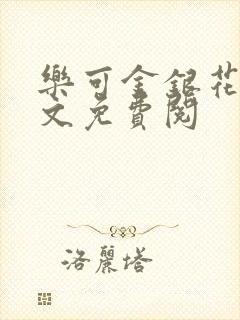 樂可金銀花
文免費閱
洛麗塔